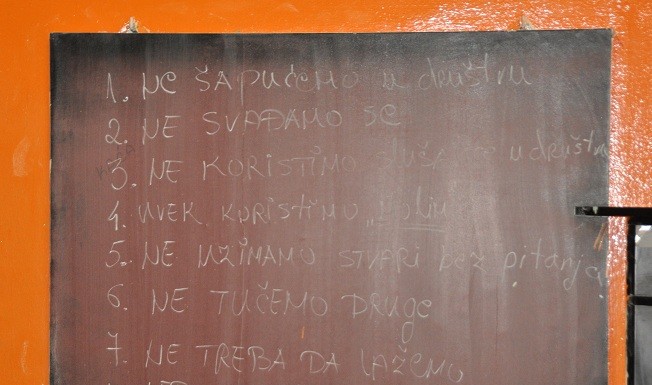 1. NE ŠAPUĆEMO u društvu
2. NE SVAĐAMO SE
3. NE KORISTIMO u društvu
4. UVEK KORISTIMO „
5. NE UZIMAMO STVARI bez pitanja
6. NE TUČEMO DRUGE
7. NE TREBA DA LAŽEMO